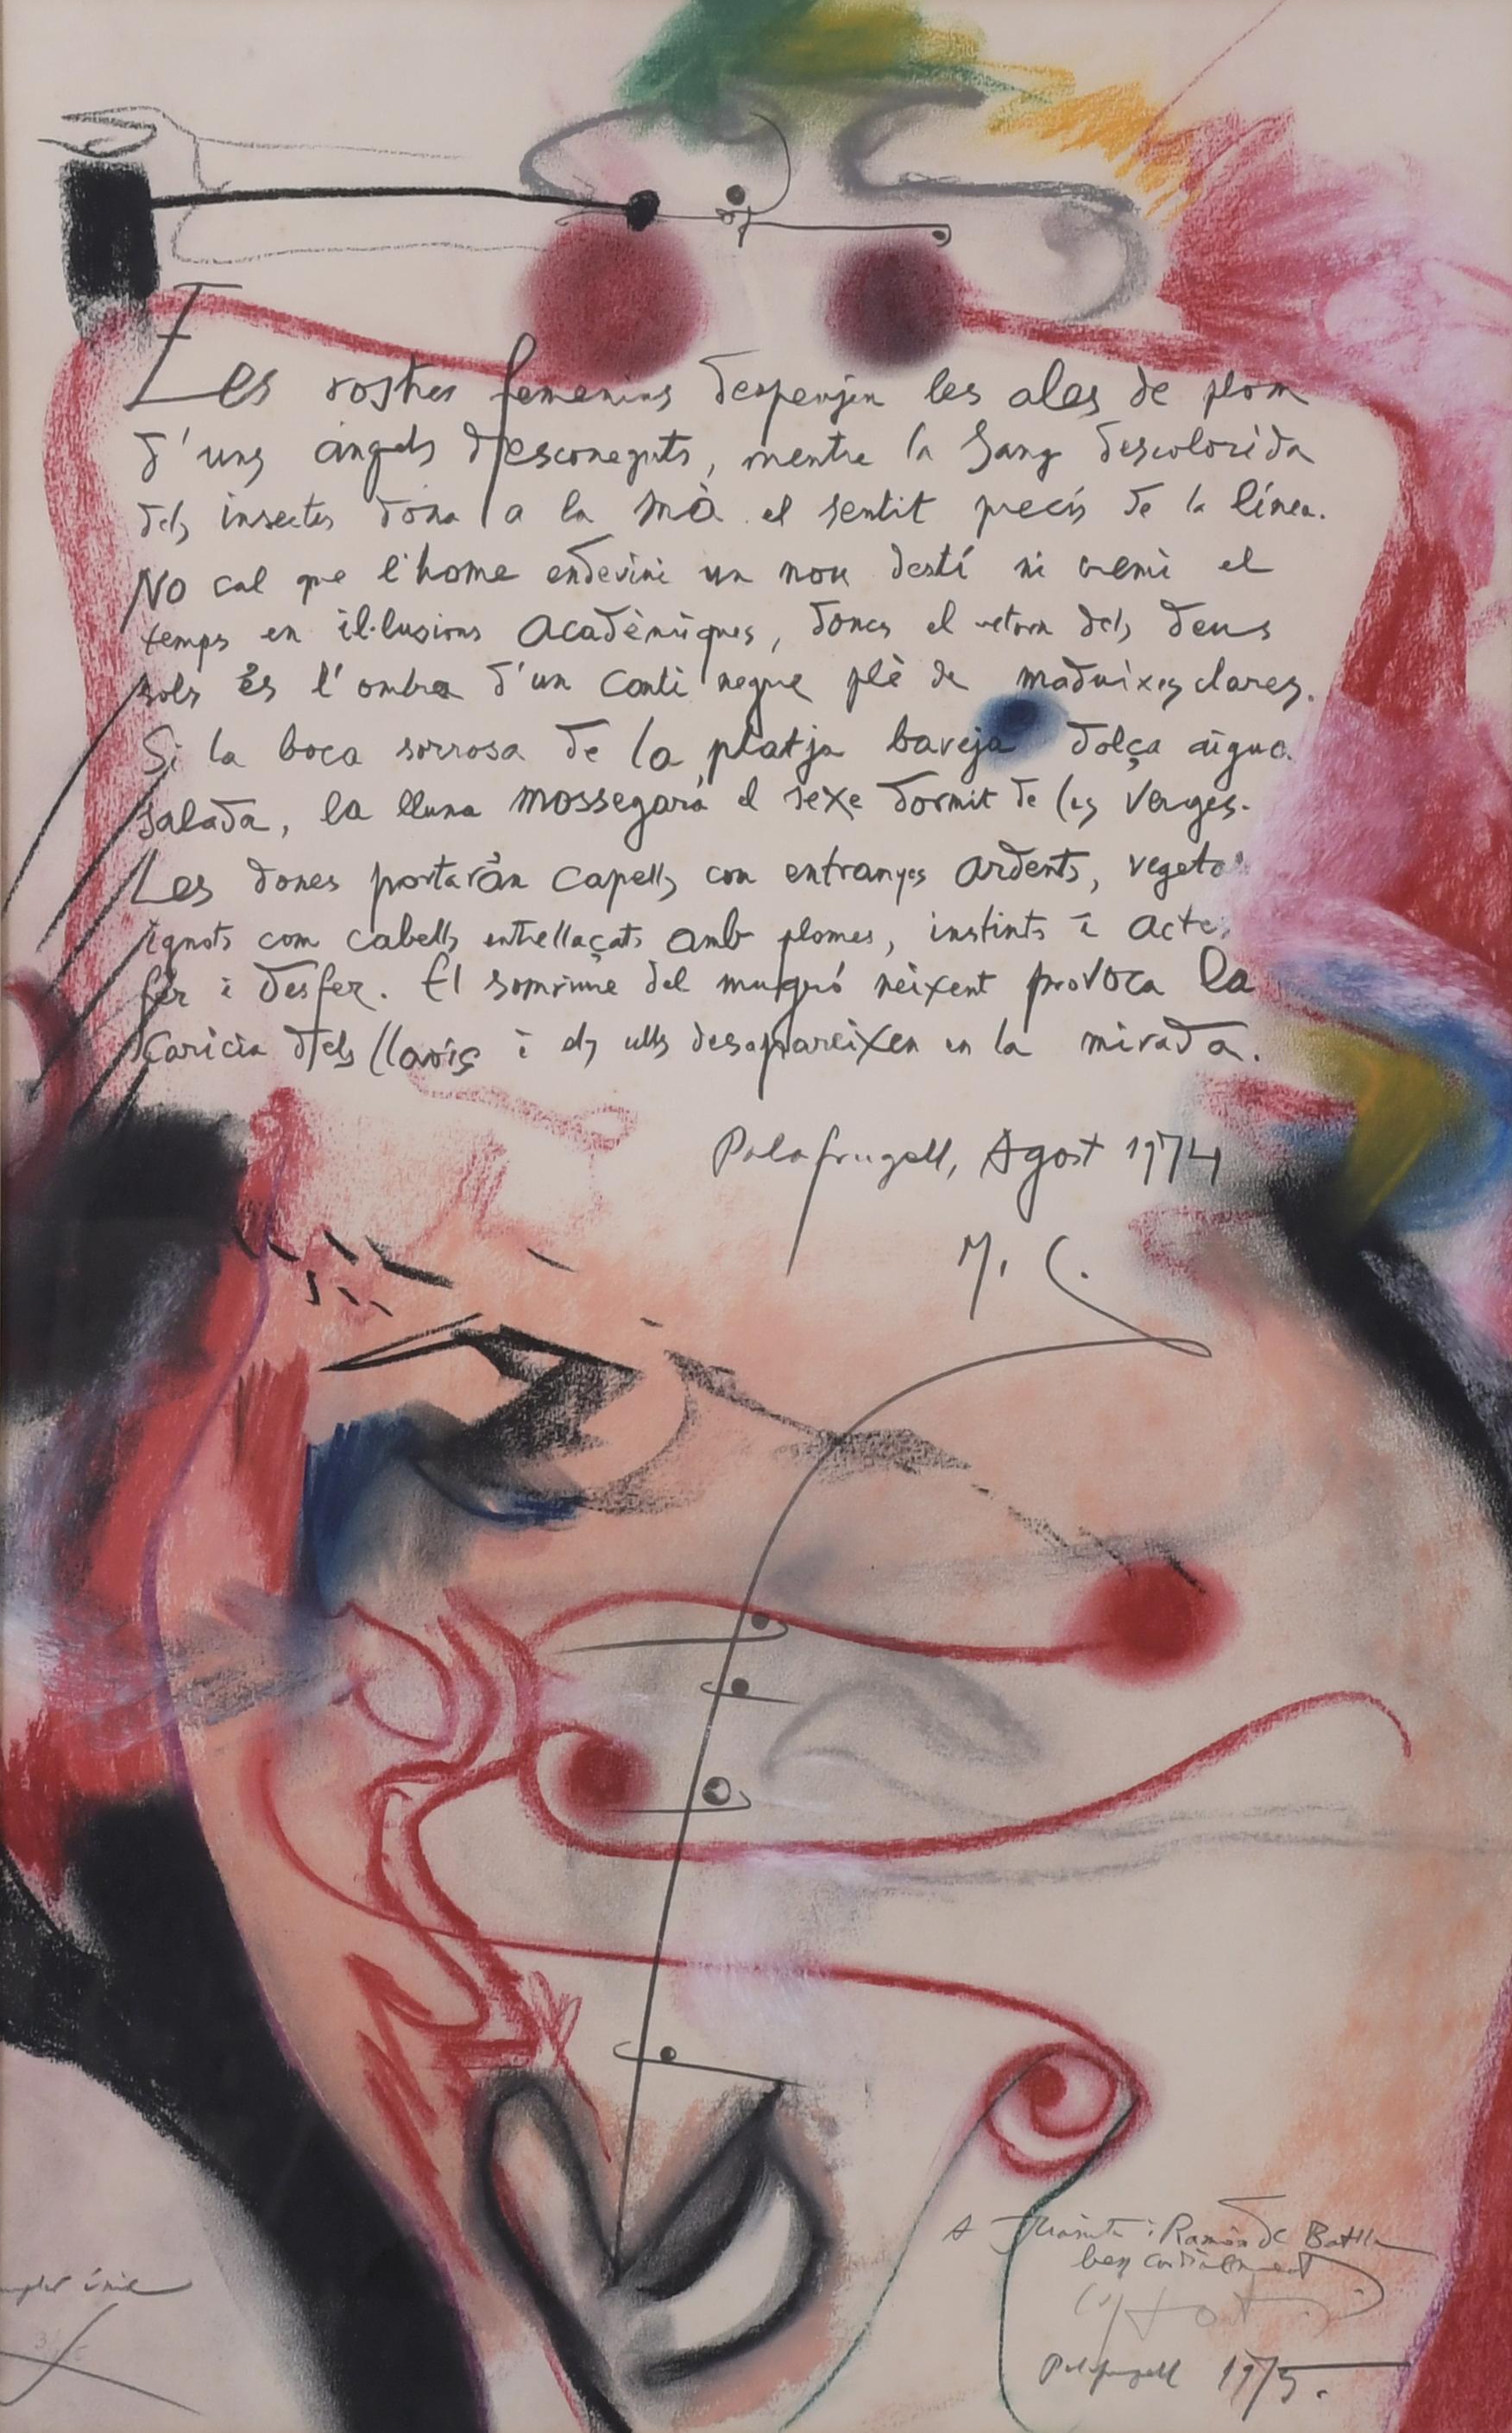 Les rostres femenins despenjen les ales de plom
d'uns àngels desconeguts, mentre la sang descolorida
dels insectes dóna a la mà el sentit precís de la línea.
No cal que l'home endevini un nou destí ni cremi el
temps en il·lusions acadèmiques, doncs el retorn dels deus
sols és l'ombra d'un canti negre plè de maduixes clares.
Si la boca sorrosa de la platja baveja dolça aigua
salada, la lluna mossegarà el sexe dormit de les verges.
Les dones portaràn capells com entranyes ardents, vegetals
ignots com cabells entrellaçats amb plomes, instints i actes
fer i desfer. El somriure del mugró neixent provoca la
caricia dels llavis i els ulls desapareixen en la mirada.
Palafrugell, Agost 1974
M. C.
A i Ramón de Batlle
ben cordialment
Palafrugell 1975.
únic